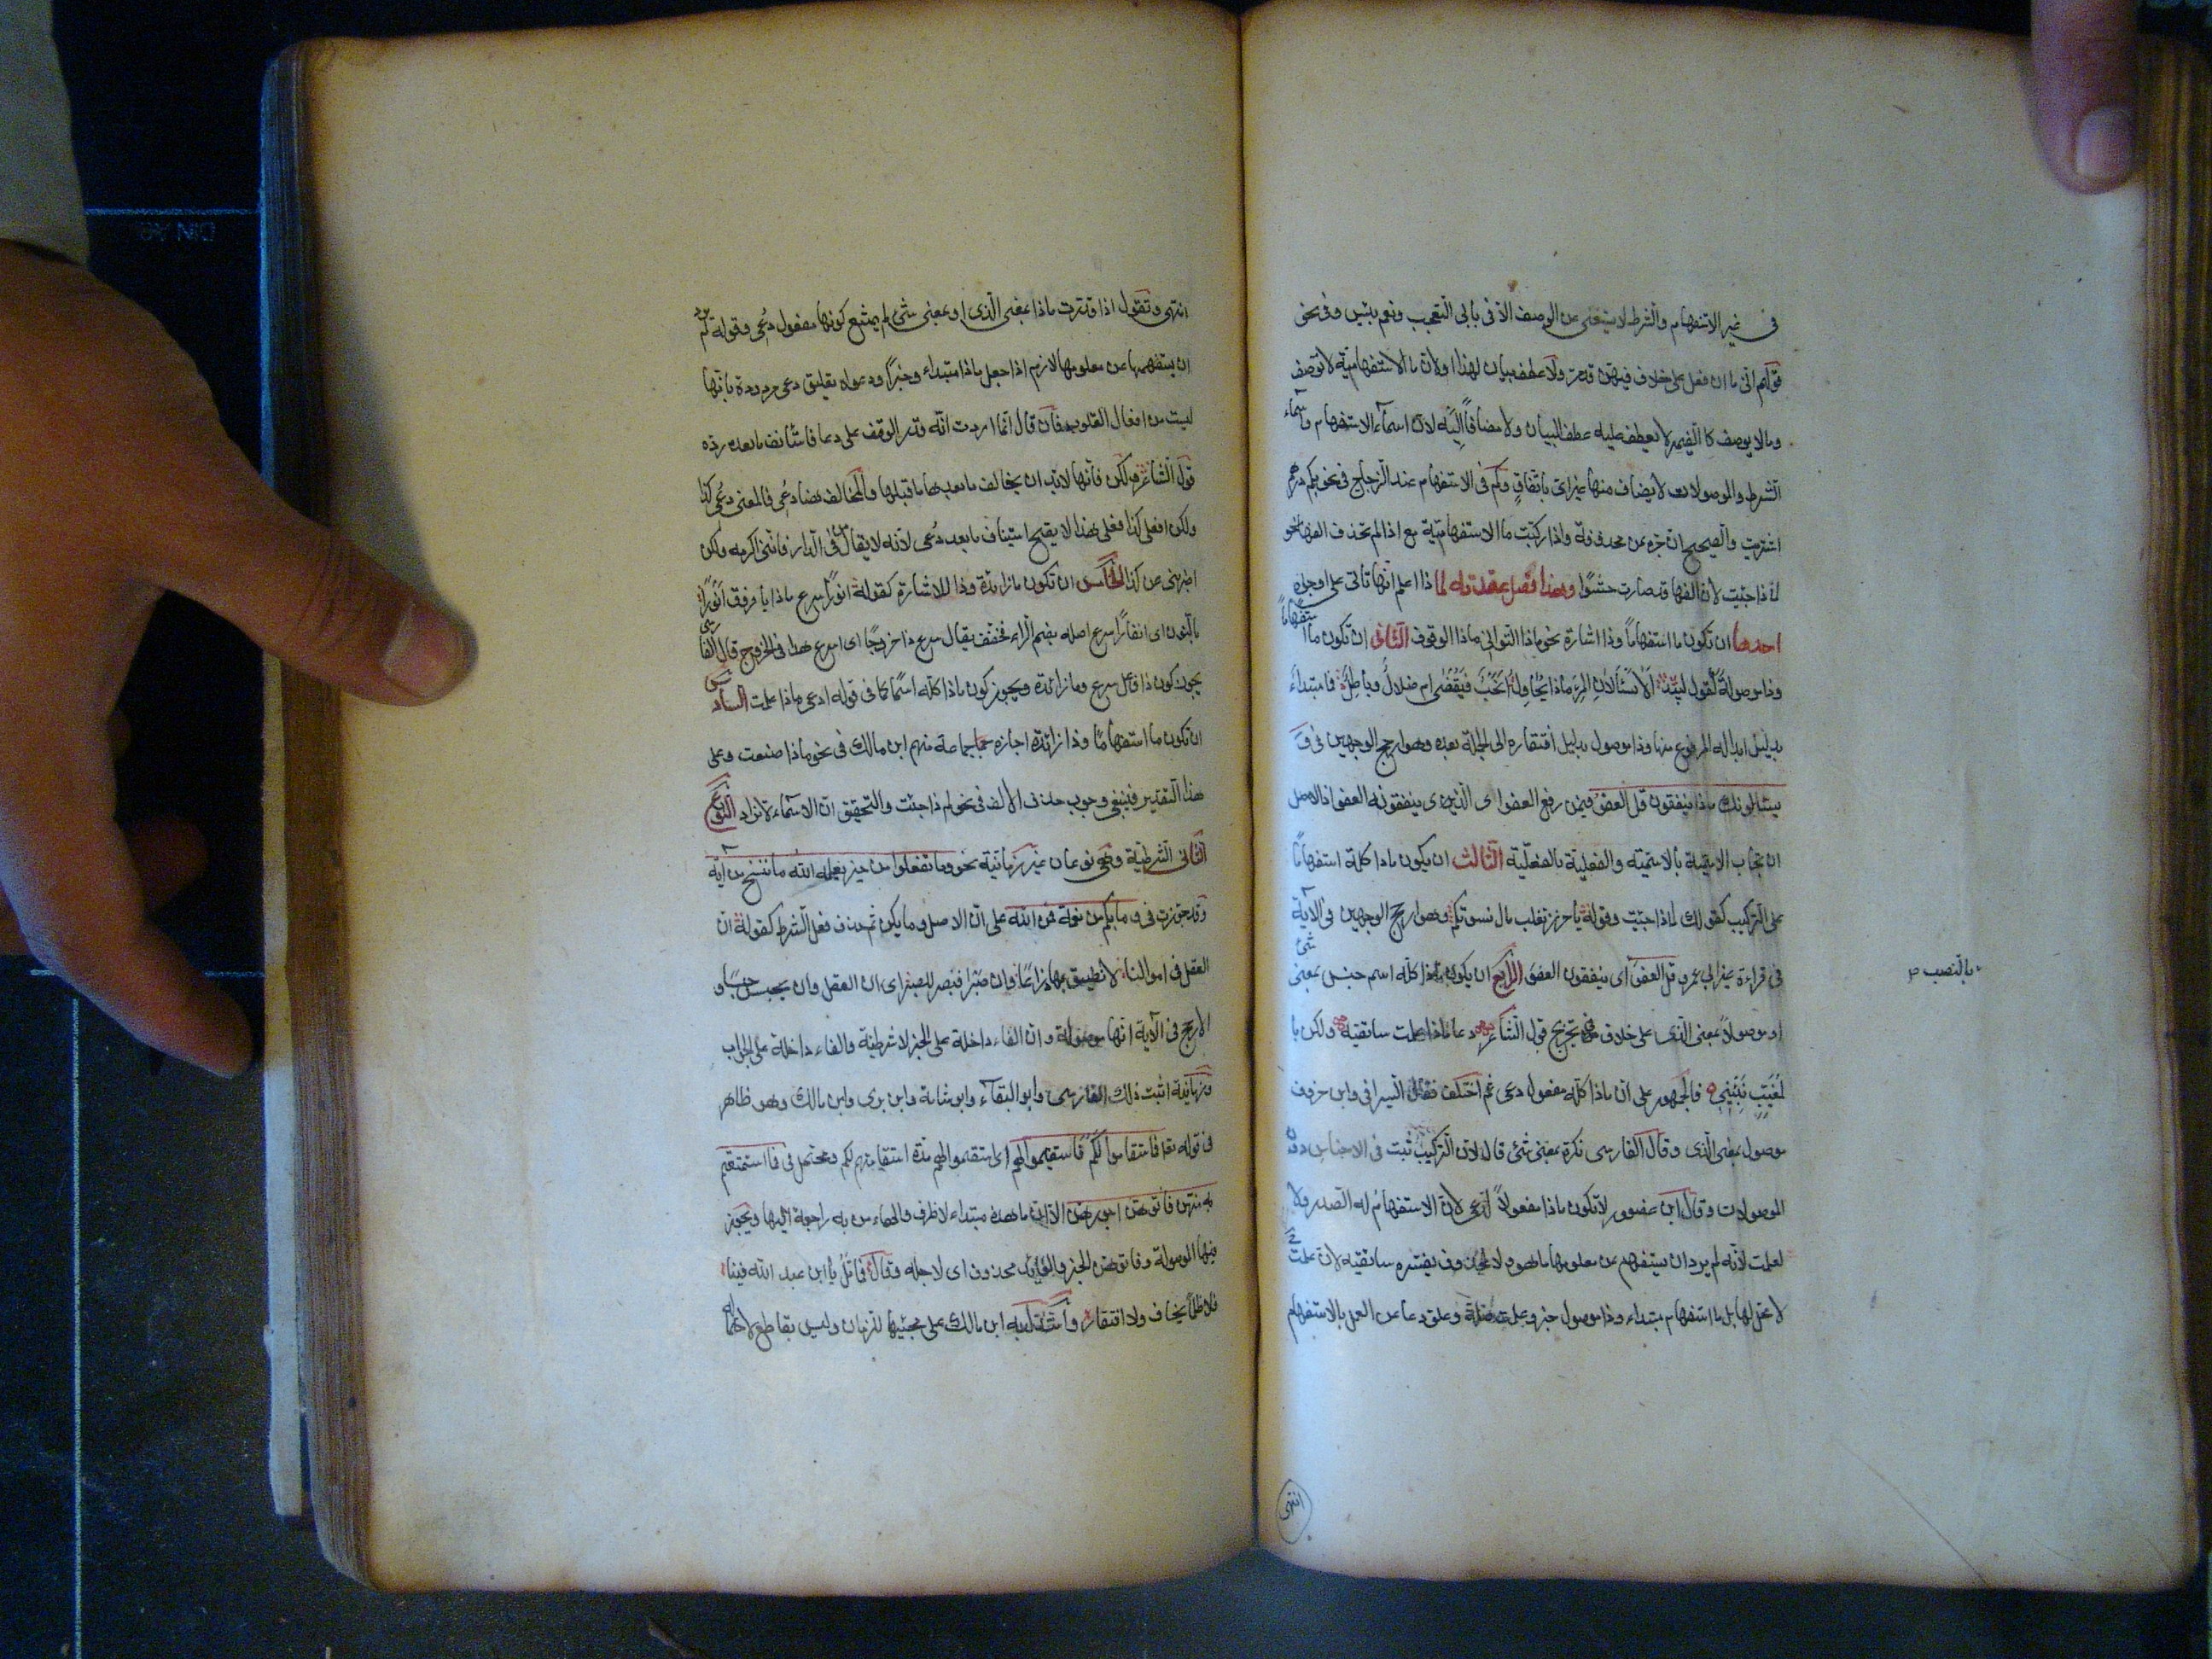 في غير الاستفهام والشرط لا يستغنى عن الوصف الا في بابى التعجب ونعم وبئس وفى نحو
قولهم انى مما ان افعل على خلاف فيهن قد مر ولا عطف بيان لهذا ولان ما الاستفهامية لا توصف
وما لا يوصف كالضمير لا يعطف عليه عطف البيان ولا مضافا اليه لان اسماء الاستفهام واسماء
الشرط والموصولات لا يضاف منها غير اى باتفاق وكم فى الاستفهام عند الزجاج فى نحو بكم درهم
اشتريت والصحيح ان جره بمن محذوفة واذا ركبت ما الاستفهامية مع اذا لم تحذف الفها نحو
لماذا جئت لان الفها قد صارت حشوا وهذا فصل عقدته لماذا اعلم انها تاتى على اوجه
احدها ان تكون ما استفهاما وذا اشارة نحو ماذا التوانى ماذا الوقوف الثانى ان تكون ما استفهاما
وذا موصولة كقول لبيد الا تسألان المرء ماذا يحاول انحب فيقضى ام ضلال وباطل فما مبتداء
بدليل ابداله المرفوع منها وذا موصول بدليل افتقاره الى الجملة بعده وهو ارجح الوجهين فى و
يسئالونك ماذا ينفقون قل العفو فيمن رفع العفو اى الذى ينفقونه العفو اذ الاصل
ان تجاب الاسمية بالاسمية والفعلية بالفعلية الثالث ان يكون ماذا كله استفهاما
على التركيب كقولك لماذا جئت وقوله يا خزر تغلب ماذا بال نسوتكم وهو ارجح الوجهين فى الاية
فى قراءة غير ابى عمرو قل العفو اى ينفقون العفو الرابع ان يكون ماذا كله اسم جنس بمعنى شئ
بالنصب صح
او موصولا بمعنى الذى على خلاف فى تخريج قول الشاعر دعى ماذا علمت ساتقيه ولكن با
لمغيب نبئينى فالجمهور على ان ماذا كله مفعول دعى ثم اختلف فقال السيرافى وابن خروف
موصول بمعنى الذى وقال الفارسى نكرة بمعنى شئ قال لان التركيب ثبت فى الاجناس دون
الموصولات وقال ابن عصفور لا تكون ماذا مفعولا لدعى لان الاستفهام له الصدر ولا
لعلمت لانه لم يرد ان يستفهم عن معلومها ما هو ولا لمحذوف يفسره ساتقيه لان علمت ح
لا محل لها بل ما استفهام مبتداء وذا موصول خبر وعلمت صلة وعلق دعا عن العمل بالاستفهام
انتهى
انتهى وتقول اذا قدرت ماذا بمعنى الذى او بمعنى شئ لم يمتنع كونها مفعول دعى وقوله لم يرد
ان يستفهم بها عن معلومها لازم اذا جعل ماذا مبتداء وخبرا ودعواه تعليق دعى مردودة بانها
ليست من افعال القلوب فان قال انما اردت انه قدر الوقف على دعا فاستانف ما بعده رده
قول الشاعر ولكن فانها لابد ان يخالف ما بعدها ما قبلها والمخالف هنا دعى فالمعنى دعى كذا
ولكن افعلى كذا فعلى هذا لا يقبح استيناف ما بعد دعى لانه لا يقال من فى الدار فاننى اكرمه ولكن
اخبرنى عن كذا الخامس ان تكون ما زائدة وذا للاشارة كقوله انورا سرع ماذا يا فروق انورا
بالنون اى انفارا سرع اصله بضم الراء فخفف يقال سرع ذا خروجا اى اسرع هذا فى الخروج قال الفارسى
يجوز كون ذا فاعل سرع وما زائدة ويجوز كون ماذا كله اسما كما فى قوله دعى ماذا علمت السادس
ان تكون ما استفهاما وذا زائدة اجازه جماعة منهم ابن مالك فى نحو ماذا صنعت وعلى
هذا التقدير فينبغى وجوب حذف الالف فى نحو لم ذا جئت والتحقيق ان الاسماء لا تزاد النوع
الثانى الشرطية وهى نوعان غير زمانية نحو وما تفعلوا من خير يعلمه الله ما ننسخ من آية
وقد جوزت فى وما بكم من نعمة فمن الله على ان الاصل وما يكن ثم حذف فعل الشرط كقوله ان
العقل فى اموالنا لا نضيق بها ذراعا وان صبرا فنصبر للصبر اى ان العقل وان يحبس حبسا و
الارجح فى الآية انها موصولة وان الفاء داخلة على الخبر لا شرطية والفاء داخلة على الجواب
وزمانية اثبت ذلك الفارسى وابو البقاء وابو شامة وابن برى وابن مالك وهو ظاهر
فى قوله تعا فما استقاموا لكم فاستقيموا لهم اى استقيموا لهم مدة استقامتهم لكم ومحتمل فى فما استمتعتم
به منهن فآتوهن اجورهن الا ان ما هذه مبتداء لا ظرف والهاء من به راجعة اليها ويجوز
فيها الموصولة وفاتوهن الخبر والعائد محذوف اى لاجله وقال فما تك يا ابن عبد الله فينا
فلا ظلما يخاف ولا افتقارا واستدل به ابن مالك على مجئيها للزمان وليس بقاطع لاحتماله